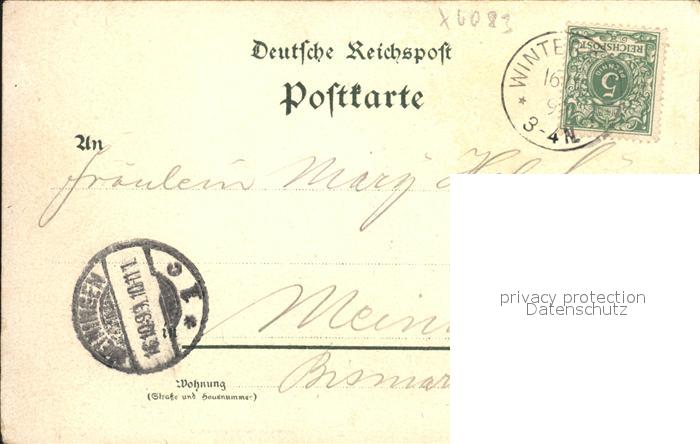 X6083
Deutsche Reichspost
Postkarte
REICHSPOST
5
PFENNIG
WINTER
16
9
3-4 N.
An
Fräulein Mary
MEININGEN
16.10.99.10-11
1 c
Mein
Bismar
Wohnung
(Straße und Hausnummer)
privacy protection
Datenschutz